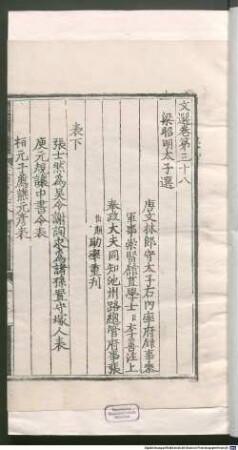 文選卷第三十八
梁昭明太子選
唐文林郎守太子右内率府録事參
軍事崇賢館直學士臣李善注上
奉政大夫同知池州路總管府事張
伯顏助率重刊
表下
張士然為吴令謝詢求為諸孫置守塚人表
庾元規讓中書令表
桓元子薦譙元彦表